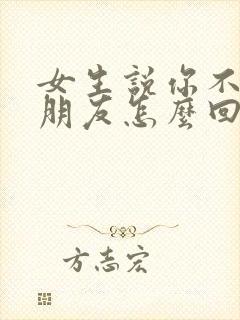 女生說你不
朋友怎麼回
方志宏